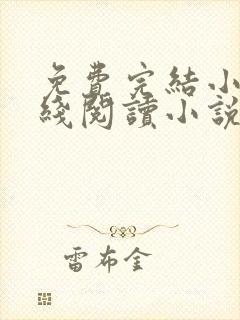 免費完結小
綫閱讀小説
雷布金